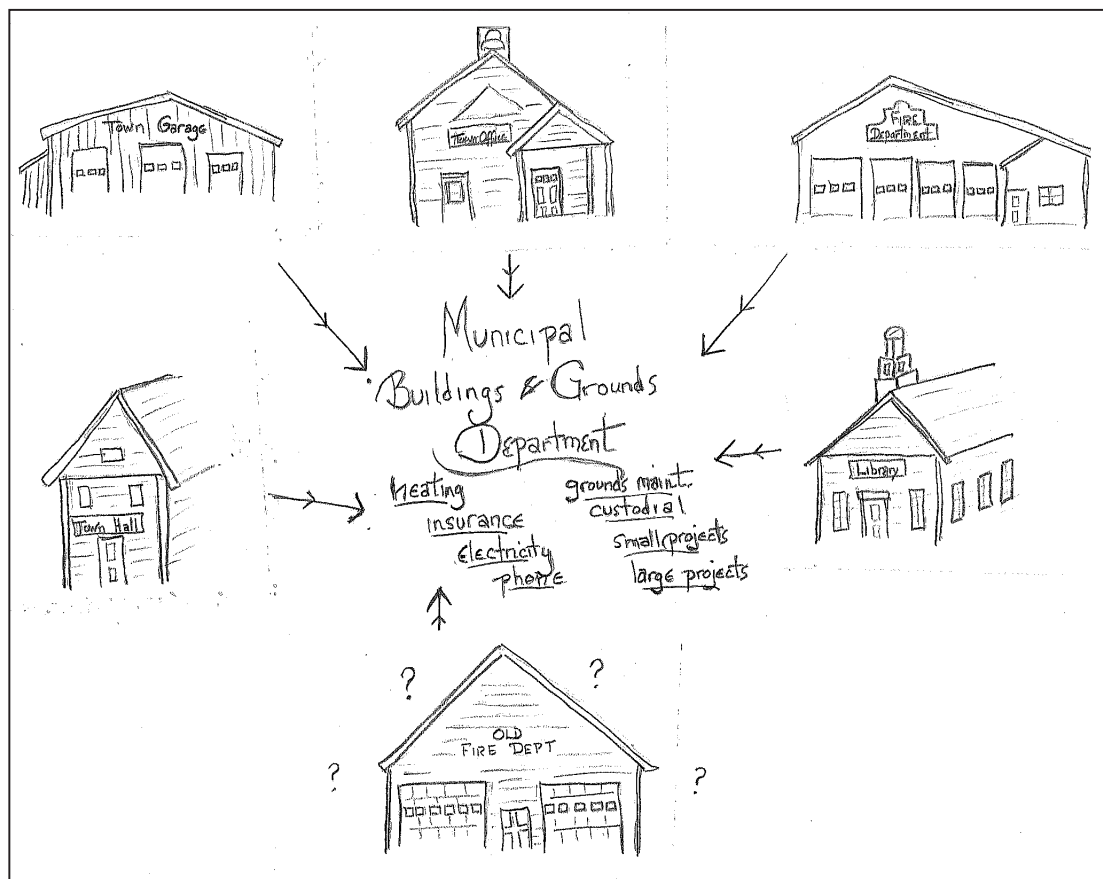 Town Garage
Town Office
FIRE
Department
Municipal
Buildings & Grounds
Department
Town Hall
Heating
insurance
electricity
phone
grounds maint.
custodial
small projects
large projects
Library
? ?
OLD
FIRE DEPT
? ?